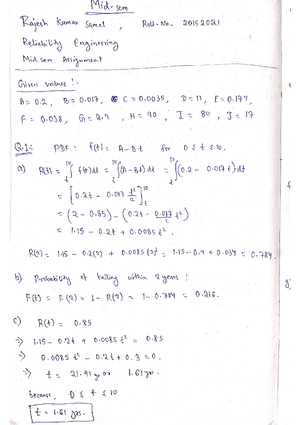 Mid-sem
Rajesh Kumar Samal, Roll-No- 20152021
Reliability Engineering
Mid sem Assignment
Given values :-
A=0.2, B=0.017, C=0.0035, D=11, E=0.179,
F=0.038, G=2.9, H=90, I=80, J=17
Q.1:- PDF = f(t) = A-Bt for 0 ≤ t ≤ 10.
a) R(t) = ∫_t^10 f(t)dt = ∫_t^10 (A-Bt) dt = ∫_t^10 (0.2 - 0.017t) dt
= [0.2t - 0.017 t²/2]_t^10
= (2 - 0.85) - (0.2t - 0.017/2 t²)
= 1.15 - 0.2t + 0.0085t².
R(2) = 1.15 - 0.2(2) + 0.0085(2)² = 1.15-0.4+0.034 = 0.784.
b) Probability of failing within 2 years :
F(t) = F(2) = 1- R(2) = 1- 0.784 = 0.216.
c) R(t) = 0.85
⇒ 1.15 - 0.2t + 0.0085t² = 0.85
⇒ 0.0085t² - 0.2t + 0.3 = 0.
⇒ t = 21.91 yr or 1.61 yr.
because, 0 ≤ t ≤ 10
t = 1.61 yrs.